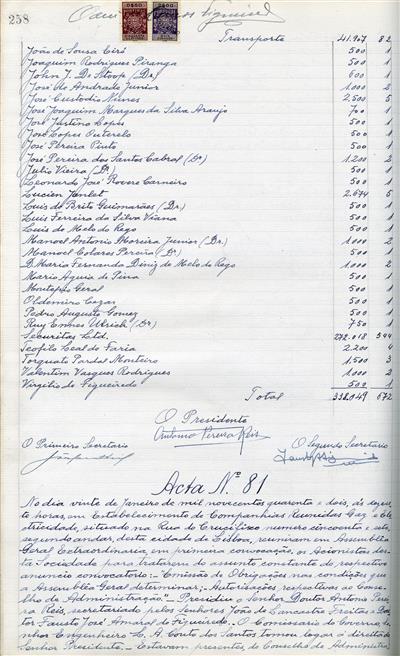 258
Transporte 41.907 82
João de Sousa Ciró 500 1
Joaquim Rodrigues Piranga 500 1
John J. De Stoop (Dr.) 600 1
José de Andrade Junior 1.000 2
José Custodio Nunes 2.500 5
José Joaquim Marques da Silva Araujo 700 1
José Justino Lopes 500 1
José Lopes Outerelo 500 1
José Pereira Pinto 500 1
José Pereira dos Santos Cabral (Dr) 1.200 2
Julio Vieira (Dr.) 500 1
Leonardo José Rovere Carneiro 500 1
Lucien 2.674 5
Luis de Brito Guimarães (Dr.) 500 1
Luis Ferreira da Silva Viana 500 1
Luis de Melo do Rego 500 1
Manoel Antonio Moreira Junior (Dr.) 1.000 2
Manoel Colares Pereira (Dr) 500 1
D. Maria Fernanda Diniz de Melo do Rego 1.000 2
Mario Aguia de Pina 500 1
Montepio Geral 500 1
Oldemiro Cezar 500 1
Pedro Augusto Gomez 500 1
Ruy Ennes Ulrich (Dr) 750 1
Securitas Ltd. 272.018 544
Teofilo Leal de Faria 2.200 4
Torquato Pardal Monteiro 1.500 3
Valentim Vasques Rodrigues 1.000 2
Virgilio de Figueiredo 500 1
Total 338.049 672
O Presidente
Antonio Pereira Reis
O Primeiro Secretario O Segundo Secretario
Acta N.º 81
No dia vinte de Janeiro de mil novecentos quarenta e dois, ás
te horas, em Estabelecimento de Companhias Reunidas Gaz e Ele
ctricidade, situado na Rua do Crucifixo numero cincoenta e sete,
segundo andar, desta cidade de Lisboa, reuniram em Assembléa
Geral Extraordinaria, em primeira convocação, os Acionistas des-
ta Sociedade para tratarem do assunto constante do respectivo
anuncio convocatorio:- "Emissão de Obrigações nas condições que
a Assembléa Geral determinar; Autorisações respectivas ao Conse-
lho de Administração." Presidiu o Senhor Doutor Antonio Perei-
ra Reis, secretariado pelos Senhores João de Lancastre Freitas e Dou-
tor Fausto José Amaral de Figueiredo. O Comissario do Governo, Se-
nhor Engenheiro L. A. Couto dos Santos tomou logar á direita do
Senhor Presidente. Estavam presentes, do Conselho de Administra-